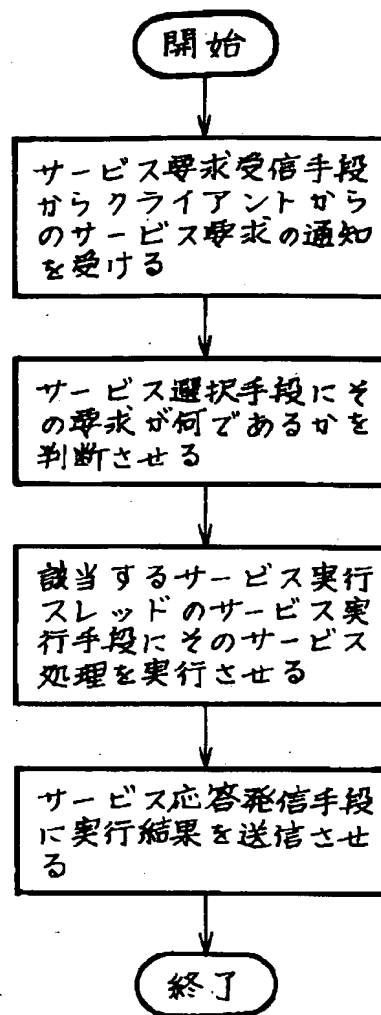 開始
サービス要求受信手段
からクライアントから
のサービス要求の通知
を受ける
サービス選択手段にそ
の要求が何であるかを
判断させる
該当するサービス実行
スレッドのサービス実
行手段にそのサービス
処理を実行させる
サービス応答発信手段
に実行結果を送信させ
る
終了